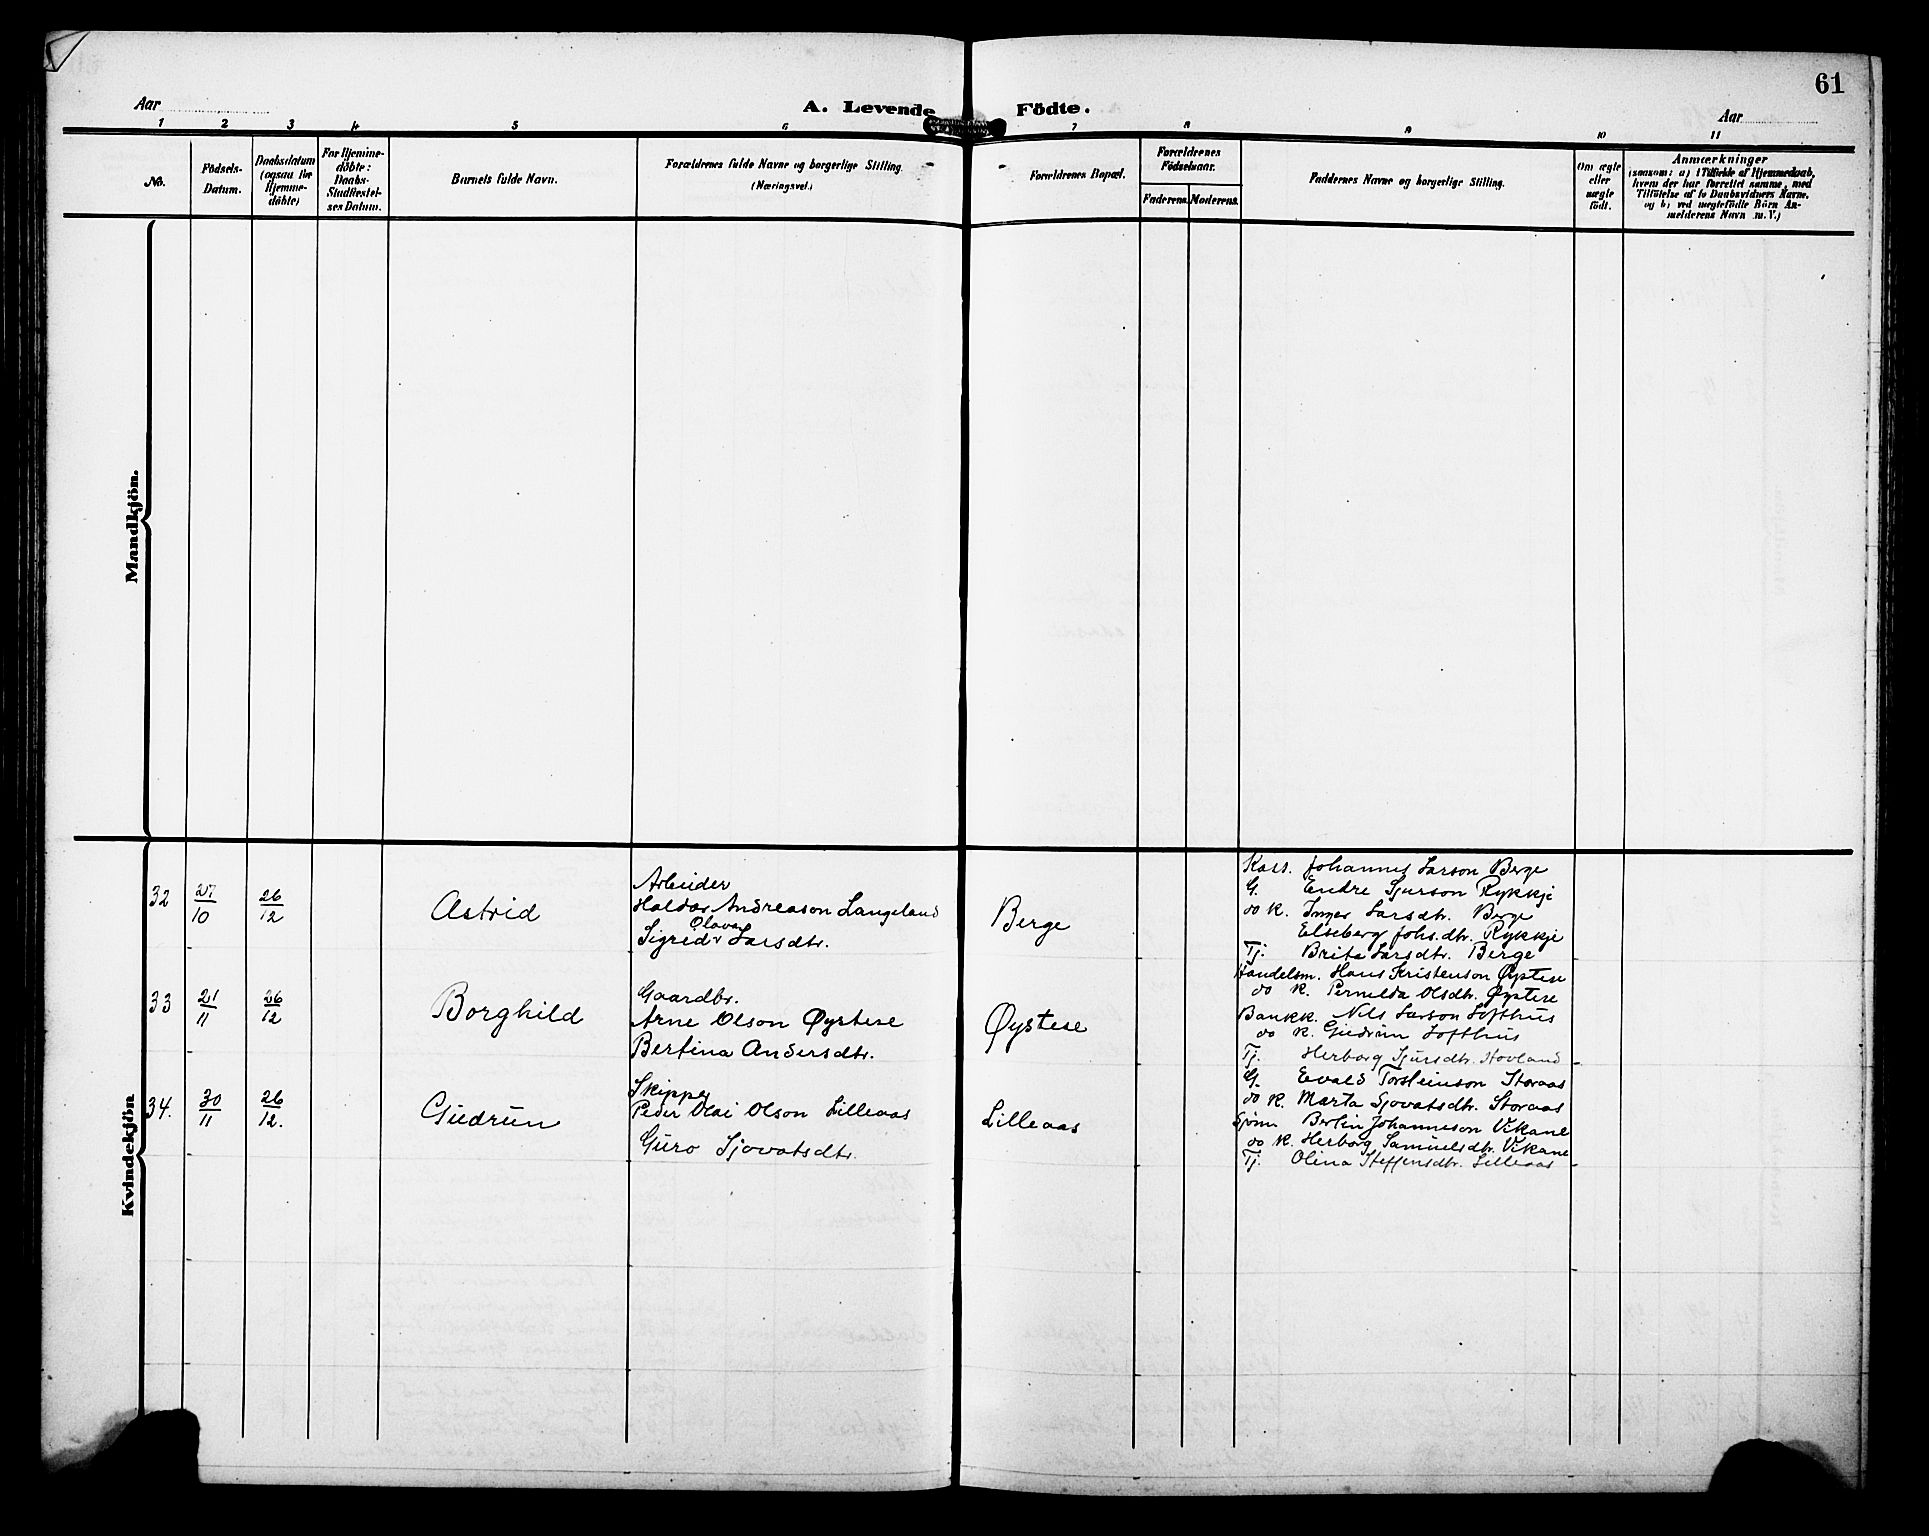 61
Aar
A. Levende Födte.
Aar
1 2 3 4 5 6 7 8 9 10 11
No.
Födsels-
Datum.
Daabsdatum
(ogsaa for
Hjemme-
döbte)
For Hjemme-
döbte:
Daabs-
Stadfæstel-
ses Datum.
Barnets fulde Navn.
Forældrenes fulde Navne og borgerlige Stilling
(Næringsvei.)
Forældrenes Bopæl.
Forældrenes
Födselsaar.
Faderens. Moderens.
Faddernes Navne og borgerlige Stilling.
Om ægte
eller
uægte
födt.
Anmærkninger
(saasom: a) i Tilfælde af Hjemmedaab,
hvem der har forrettet samme, med
Tilföielse af to Daabsvidners Navne.
og b) ved uægtefödte Börn An-
melderens Navn m. V.)
Mandkjön.
Kvindekjön
32
27/10
26/12
Astrid
Arbeider
Haldor Andreason Langeland
Olava
Sigred Larsdtr.
Berge
Kass. Johannes Larson Berge
G. Endre Sjurson Rykkje
do K. Inger Larsdtr. Berge
Elseberg Johs.dtr. Rykkje
Tj. Brita Larsdtr. Berge
33
21/11
26/12
Borghild
Gaardbr.
Arne Olson Øystese
Bertina Andersdtr.
Øystese
Handelsm. Hans Kristenson Øystese
do K. Pernilda Olsdtr. Øystese
Bankk. Nils Larson Lofthus
do K. Gudrun Lofthus
Tj. Herborg Sjursdtr. Hovland
34.
30/11
26/12.
Gudrun
Skipper
Peder Olai Olson Lilleaas
Guro Sjovatsdtr.
Lilleaas
G. Evald Torsteinson Storaas
do K. Marta Sjovatsdtr. Storaas
Sjöm. Berlin Johanneson Vikane
do K. Herborg Samuelsdtr. Vikane
Tj. Olina Steffensdtr. Lilleaas